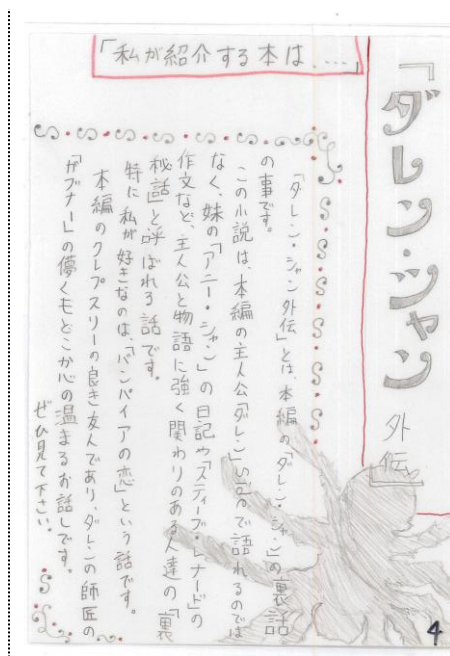 「私が紹介する本は、....」
『ダレン・シャン
外伝』
「ダレン・シャン外伝」とは、本編の「ダレン・シャン」の裏話
の事です。
この小説は、本編の主人公「ダレン」sideで語れるのでは
なく、妹の「アニー・シャン」の日記や「スティーブ・レナード」の
作文など、主人公と物語に強く関わりのある人達の「裏
秘話」と呼ばれる話です。
特に私が好きなのは、「バンパイアの恋」という話です。
本編のクレプスリーの良き友人であり、ダレンの師匠の
「ガブナー」の儚くもどこか心の温まるお話しです。
ぜひ見て下さい。
4